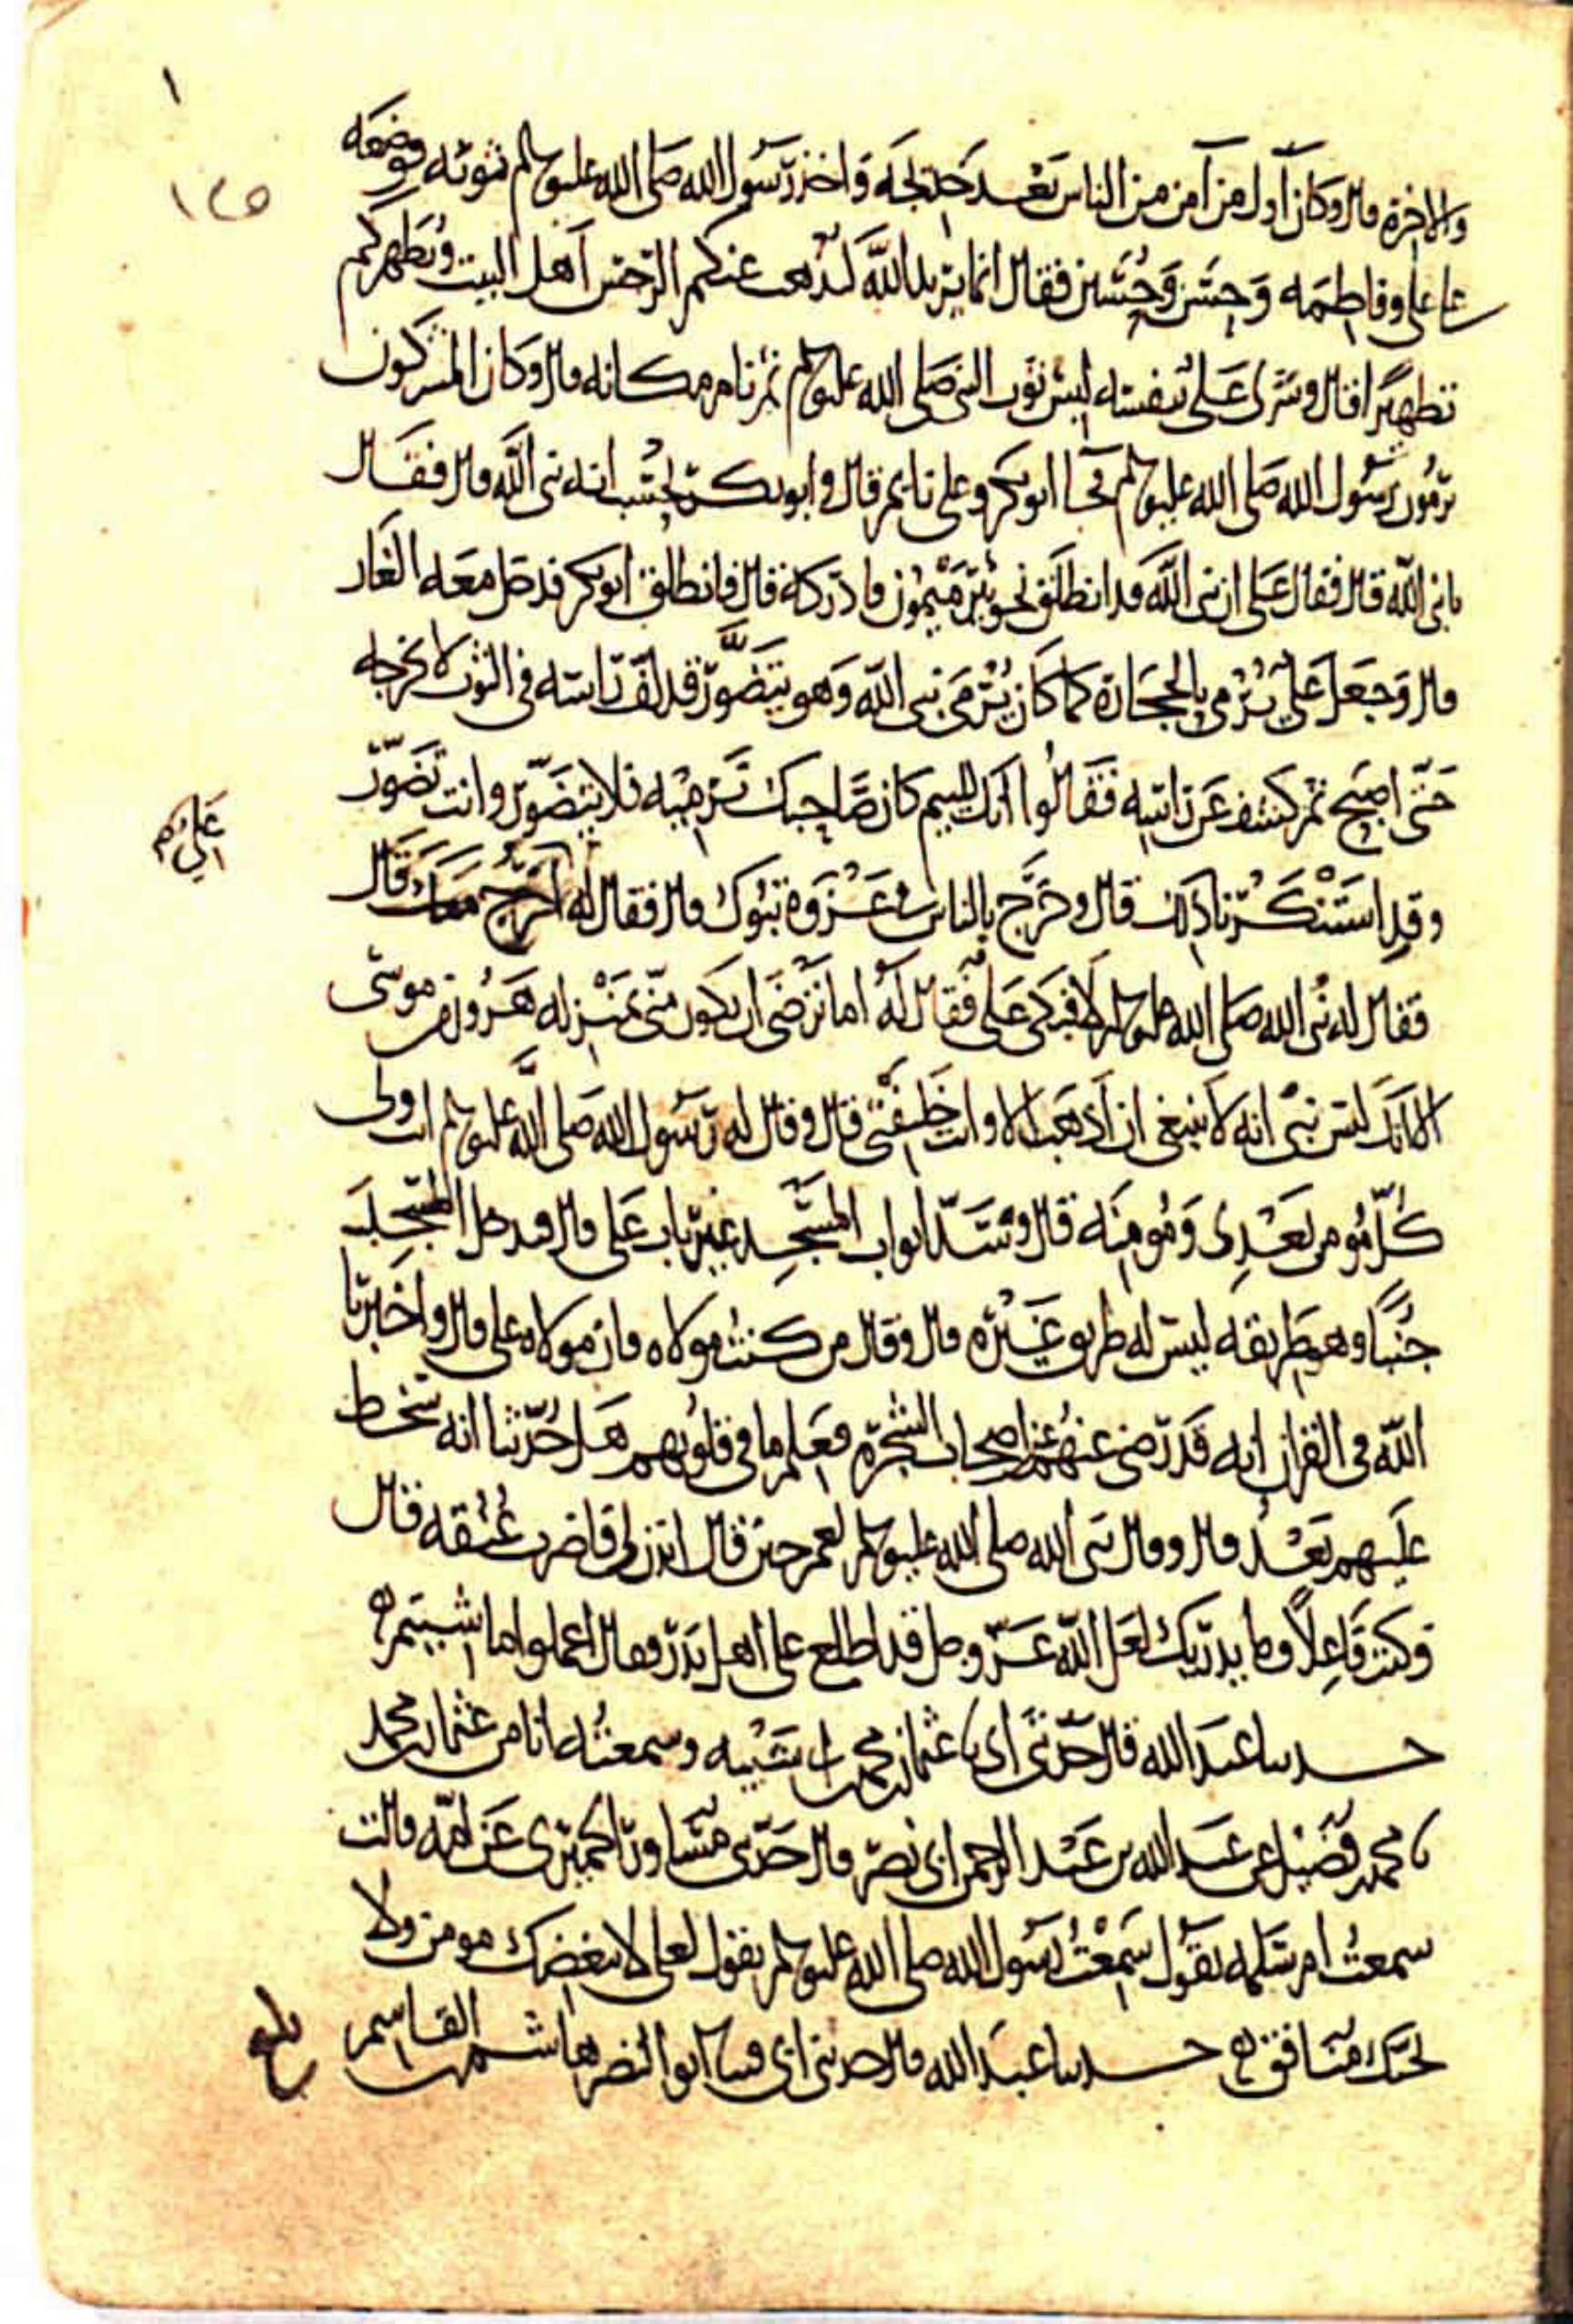 ١
١٤٥
والاخرة قال وكان اول من آمن من الناس بعد خديجة واخذ رسول الله صلى الله عليه وسلم ثوبه فوضعه
على علي وفاطمة وحسن وحسين فقال انما يريد الله ليذهب عنكم الرجس اهل البيت ويطهركم
تطهيرا قال وشرى علي نفسه لبس ثوب النبي صلى الله عليه وسلم ثم نام مكانه قال وكان المشركون
يرمون رسول الله صلى الله عليه وسلم فجا ابو بكر وعلي نايم قال وابو بكر يحسب انه نبي الله قال فقال
يا نبي الله قال فقال علي ان نبي الله قد انطلق نحو بئر ميمون فادركه قال فانطلق ابو بكر فدخل معه الغار
قال وجعل علي يرمى بالحجارة كما كان يرمى نبي الله وهو يتضور قد لف راسه في الثوب لا يخرجه
حتى اصبح ثم كشف عن راسه فقالوا انك للئيم كان صاحبك نرميه فلا يتضور وانت تضور
وقد استنكرنا ذلك قال وخرج بالناس في غزوة تبوك قال فقال له اخرج معك قال
علي
فقال له نبي الله صلى الله عليه وسلم لا فبكى علي فقال له اما ترضى ان تكون مني بمنزلة هرون من موسى
الا انك لست بنبي انه لا ينبغي ان اذهب الا وانت خليفتي قال وقال له رسول الله صلى الله عليه وسلم انت ولي
كل مومن بعدي ومومنة قال وسد ابواب المسجد غير باب علي قال فدخل المسجد
جنبا وهو طريقه ليس له طريق غيره قال وقال من كنت مولاه فان مولاه علي قال واخبرنا
الله في القران انه قد رضي عنهم عن اصحاب الشجرة فعلم ما في قلوبهم هل حدثنا انه سخط
عليهم بعد قال وقال نبي الله صلى الله عليه وسلم لعمر حين قال ائذن لي فاضرب عنقه قال
وكنت فاعلا وما يدريك لعل الله عز وجل قد اطلع على اهل بدر فقال اعملوا ما شيتم
حدثنا عبد الله قال حدثني ابي نا عثمان بن محمد بن ابي شيبة وسمعته انا من عثمان بن محمد
نا محمد بن فضيل عن عبد الله بن عبد الرحمن ابي نصر قال حدثني مساور الحميري عن امه قالت
سمعت ام سلمة تقول سمعت رسول الله صلى الله عليه وسلم يقول لعلي لا يبغضك مومن ولا
يحبك منافق حدثنا عبد الله قال حدثني ابي قثنا ابو النضر هاشم بن القاسم
بلغ